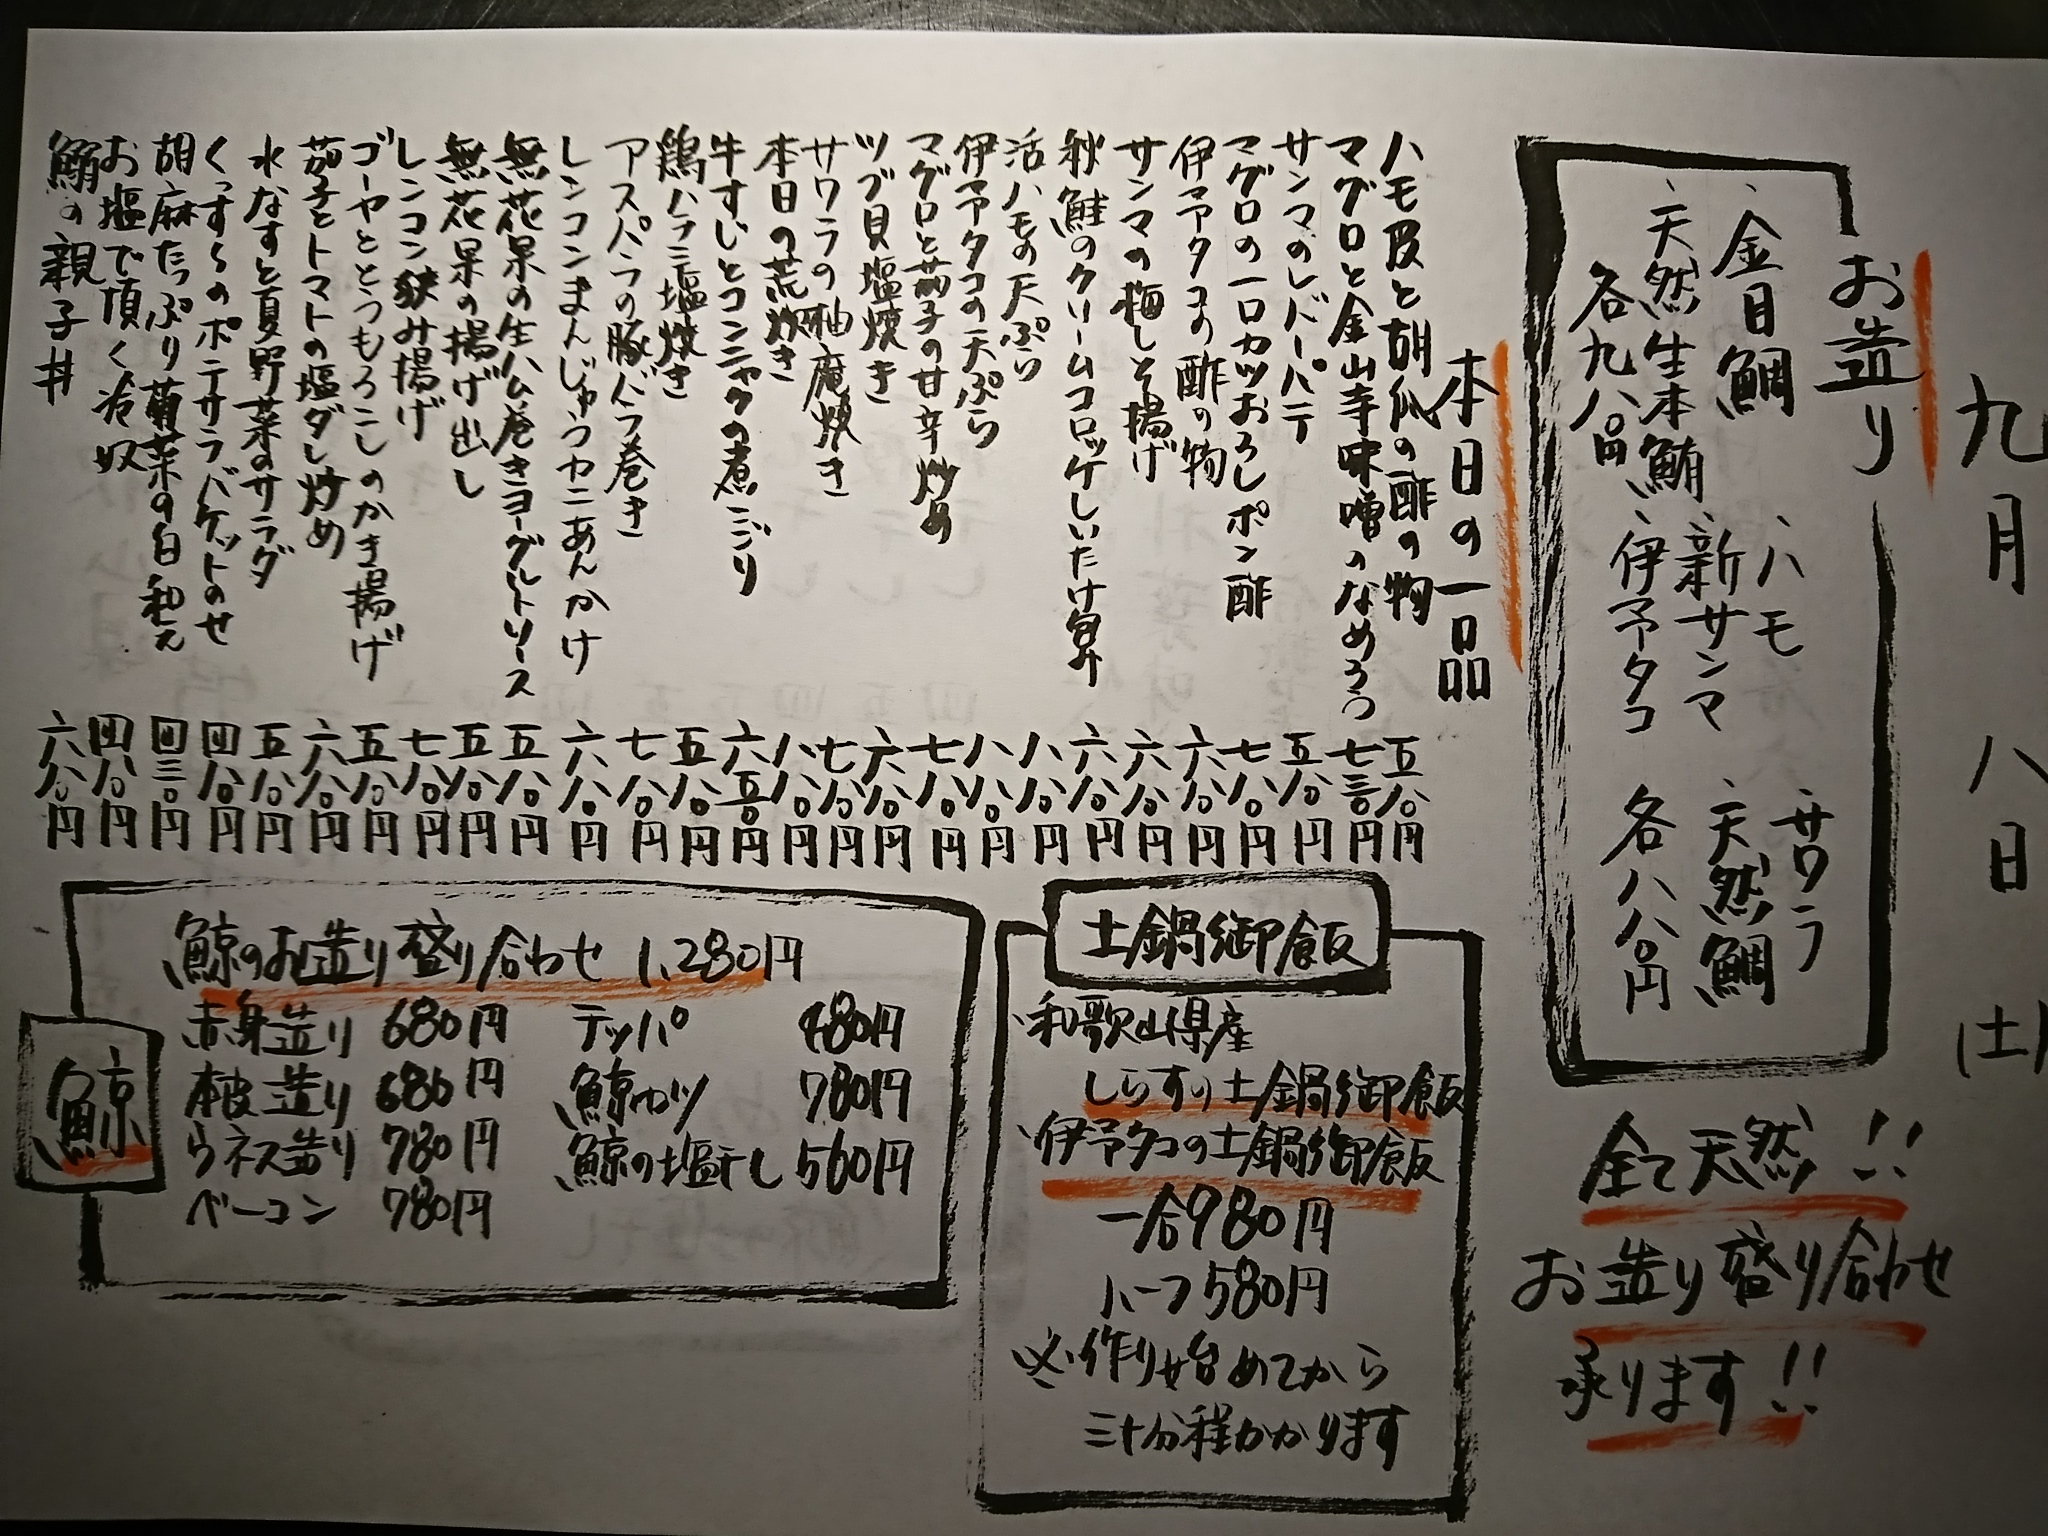 九月 八日 (土)
お造り
、金目鯛 、ハモ 、サワラ
、天然生本鮪 、新サンマ 、天然鯛
各九八〇円 、伊予タコ 各八八〇円
全て天然!!
お造り盛り合わせ
承ります!!
本日の一品
ハモ皮と胡瓜の酢の物 五八〇円
マグロと金山寺味噌のなめろう 七三〇円
サンマのレバーパテ 五八〇円
マグロの一口カツおろしポン酢 七八〇円
伊予タコの酢の物 六八〇円
サンマの梅しそ揚げ 六八〇円
秋鮭のクリームコロッケしいたけ包み 六八〇円
活ハモの天ぷら 八八〇円
伊予タコの天ぷら 八八〇円
マグロと茄子の甘辛炒め 七八〇円
ツブ貝塩焼き 六八〇円
サワラの柚庵焼き 七八〇円
本日の荒炊き 八八〇円
牛すじとコンニャクの煮こごり 六五〇円
鶏ハラミ塩焼き 五八〇円
アスパラの豚バラ巻き 七八〇円
レンコンまんじゅうカニあんかけ 六八〇円
無花果の生ハム巻きヨーグルトソース 五八〇円
無花果の揚げ出し 五八〇円
レンコン挟み揚げ 七八〇円
ゴーヤととうもろこしのかき揚げ 五八〇円
茄子とトマトの塩ダレ炒め 六八〇円
水なすと夏野菜のサラダ 五八〇円
くっすくのポテサラバケットのせ 四八〇円
胡麻たっぷり菊菜の白和え 四三〇円
お塩で頂く冷奴 四八〇円
鮪の親子丼 六八〇円
土鍋御飯
、和歌山県産
しらすの土鍋御飯
、伊予タコの土鍋御飯
一合980円
ハーフ580円
※作り始めてから
三十分程かかります
鯨
鯨のお造り盛り合わせ 1,280円
赤身造り 680円 テッパ 480円
本皮造り 680円 鯨カツ 780円
ウネス造り 780円 鯨の塩干し 560円
ベーコン 780円